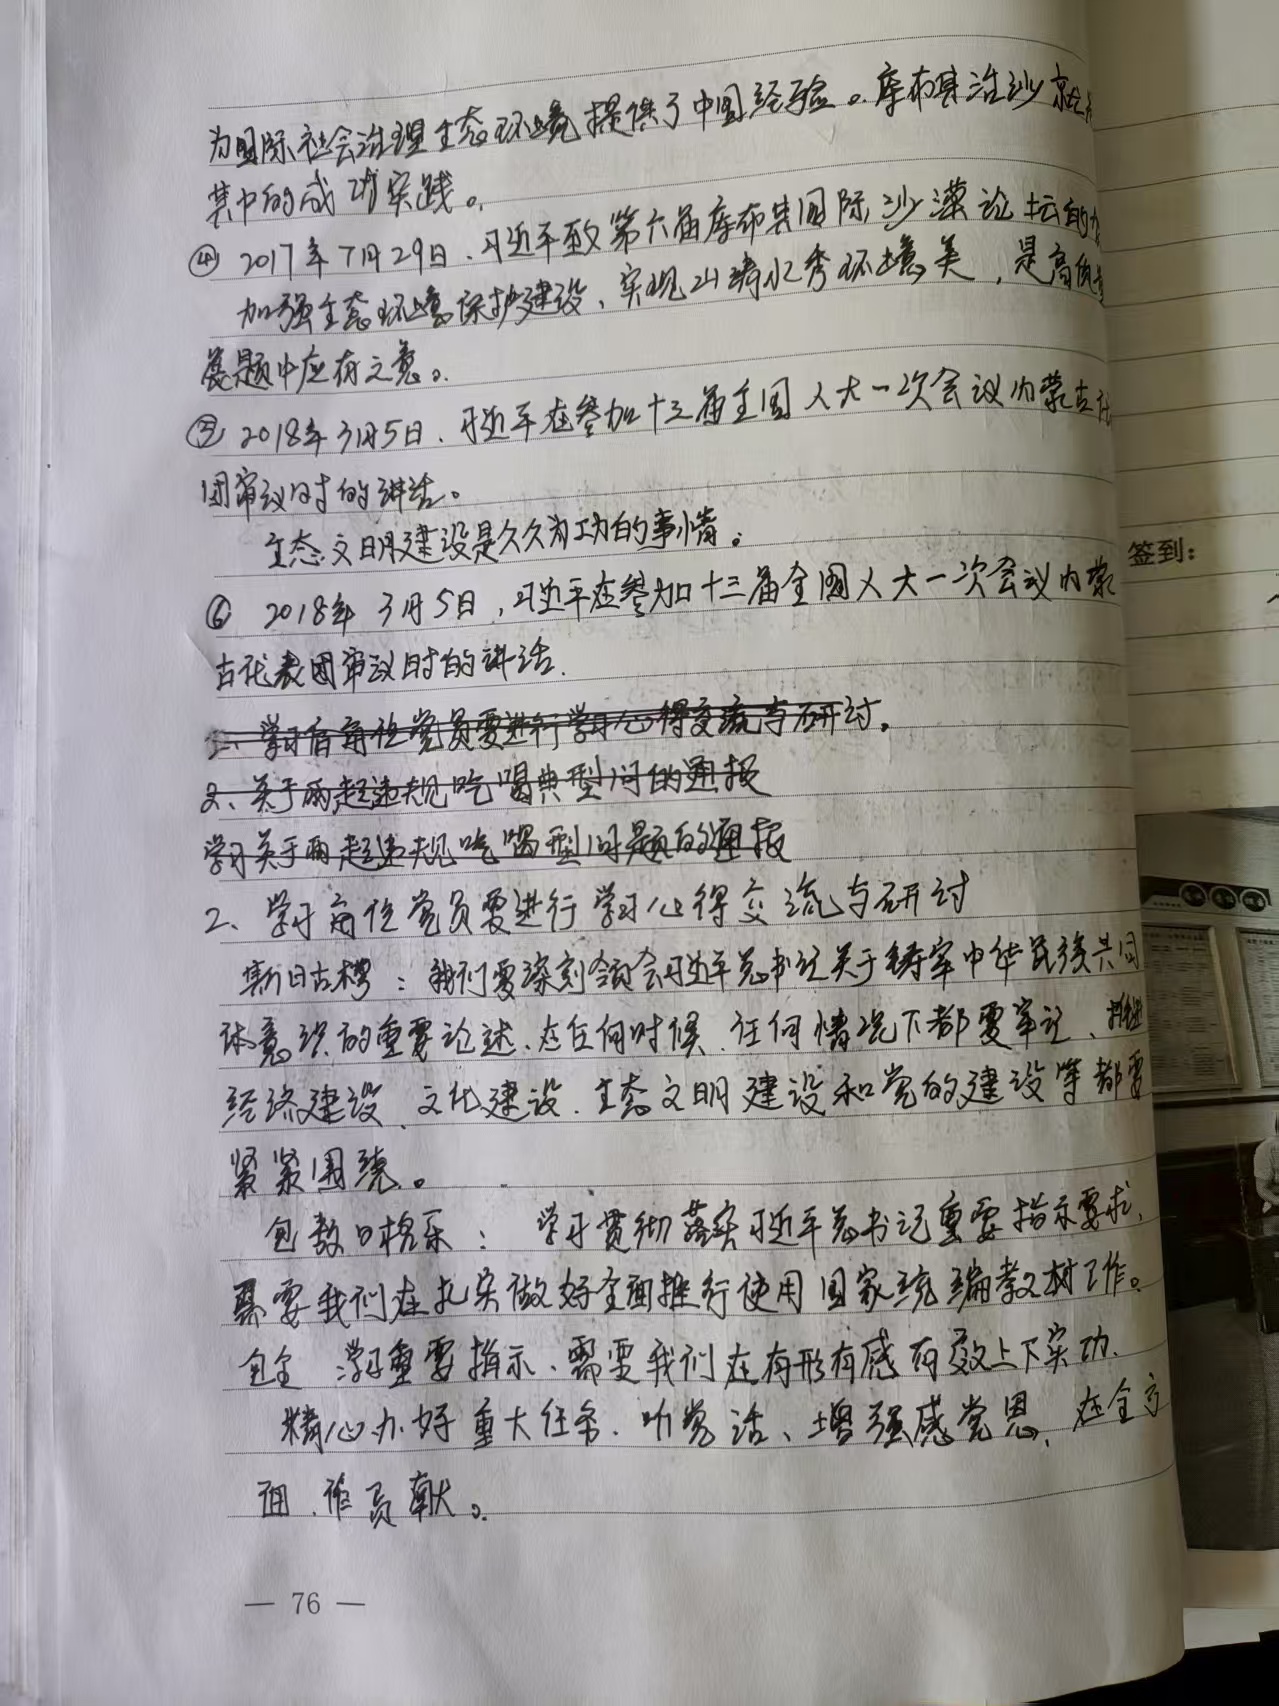 为国际社会治理生态环境提供了中国经验。库布其治沙就是
其中的成功实践。
④ 2017年7月29日、习近平致第六届库布其国际沙漠论坛的
加强生态环境保护建设、实现山清水秀环境美，是高质量
展题中应有之意。
⑤ 2018年3月5日、习近平在参加十三届全国人大一次会议内蒙古代
团审议时的讲话。
生态文明建设是久久为功的事情。
⑥ 2018年3月5日，习近平在参加十三届全国人大一次会议内蒙
古代表团审议时的讲话.
学习后每位党员要进行学习心得交流与研讨。
2、关于两起违规吃喝典型问的通报
学习关于两起违规吃喝型问题的通报
2、学习每位党员要进行学习心得交流与研讨
斯日古楞：我们要深刻领会习近平总书记关于铸牢中华民族共同
体意识的重要论述、在任何时候、任何情况下都要牢记、推进
经济建设、文化建设、生态文明建设和党的建设等都要
紧紧围绕。
包敖日格乐：学习贯彻落实习近平总书记重要指示要求、
需要我们在扎实做好全面推行使用国家统编教材工作。
包全 学习重要指示、需要我们在有形有感有效上下实功、
精心办好重大任务、听党话、增强感党恩、在全方
面、作贡献。
签到：
— 76 —